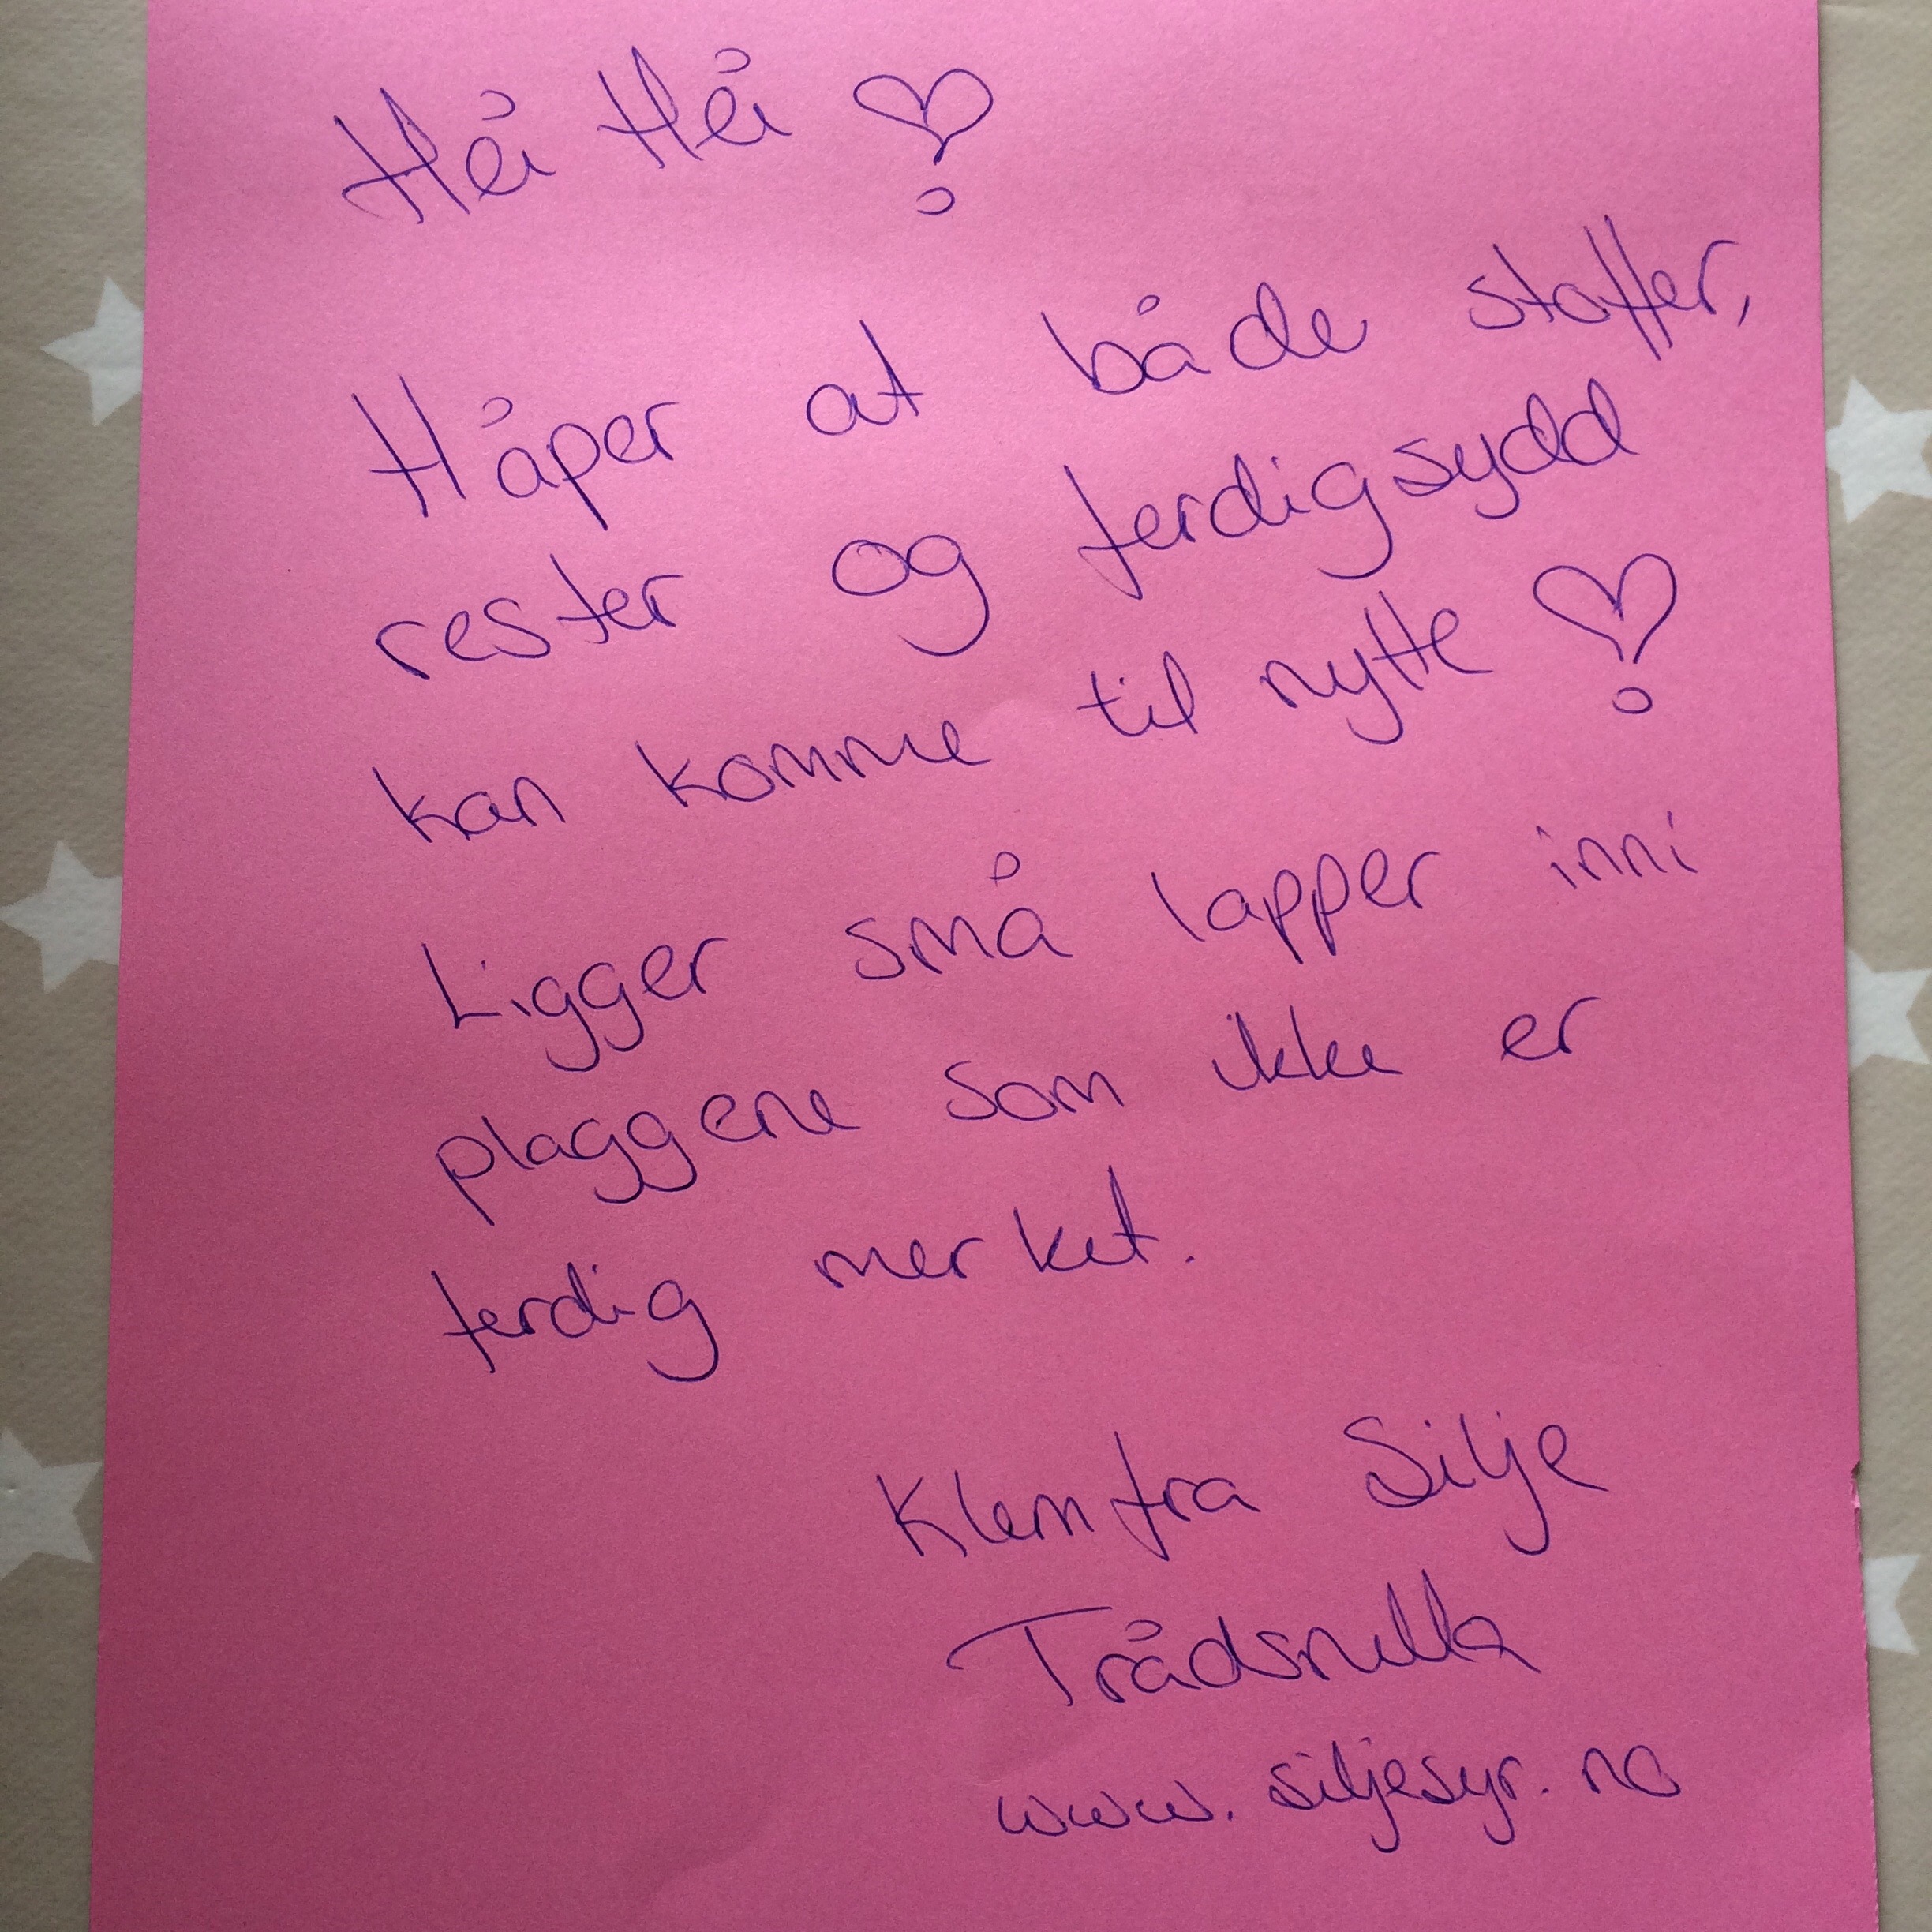 Hei Hei ♡
Håper at både stoffer,
rester og ferdigsydd
kan komme til nytte ♡
Ligger små lapper inni
plaggene som ikke er
ferdig merket.
Klem fra Silje
Trådsnella
www.siljesyr.no